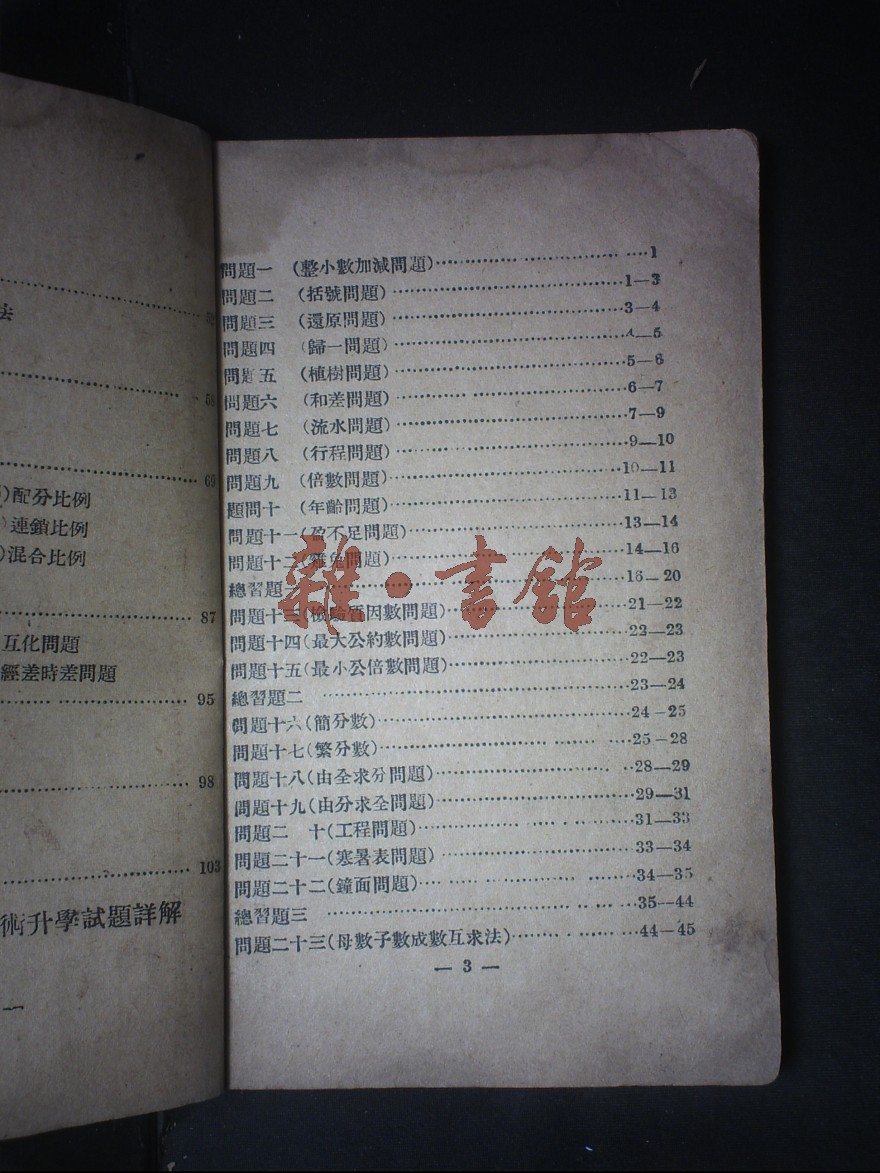 法
59
58
69
配分比例
連鎖比例
混合比例
87
互化問題
經差時差問題
95
98
103
術升學試題詳解
問題一 (整小數加減問題)…………………… ……1
問題二 (括號問題)………………………………1—3
問題三 (還原問題)………………………………3—4
問題四 (歸一問題)………………………………4—5
問題五 (植樹問題)………………………………5—6
問題六 (和差問題)………………………………6—7
問題七 (流水問題)………………………………7—9
問題八 (行程問題)………………………………9—10
問題九 (倍數問題)………………………………10—11
題問十 (年齡問題)………………………………11—13
問題十一(盈不足問題)……………………………13—14
問題十二(雞兔問題)………………………………14—16
總習題一 …………………………………………16—20
問題十三(檢驗質因數問題)………………………21—22
問題十四(最大公約數問題)………………………22—23
問題十五(最小公倍數問題)………………………22—23
總習題二 …………………………………………23—24
問題十六(簡分數)…………………………………24—25
問題十七(繁分數)…………………………………25—28
問題十八(由全求分問題)…………………………28—29
問題十九(由分求全問題)…………………………29—31
問題二 十(工程問題)……………………………31—33
問題二十一(寒暑表問題)…………………………33—34
問題二十二(鐘面問題)……………………………34—35
總習題三 …………………………………………35—44
問題二十三(母數子數成數互求法)………………44—45
— 3 —
雜·書館